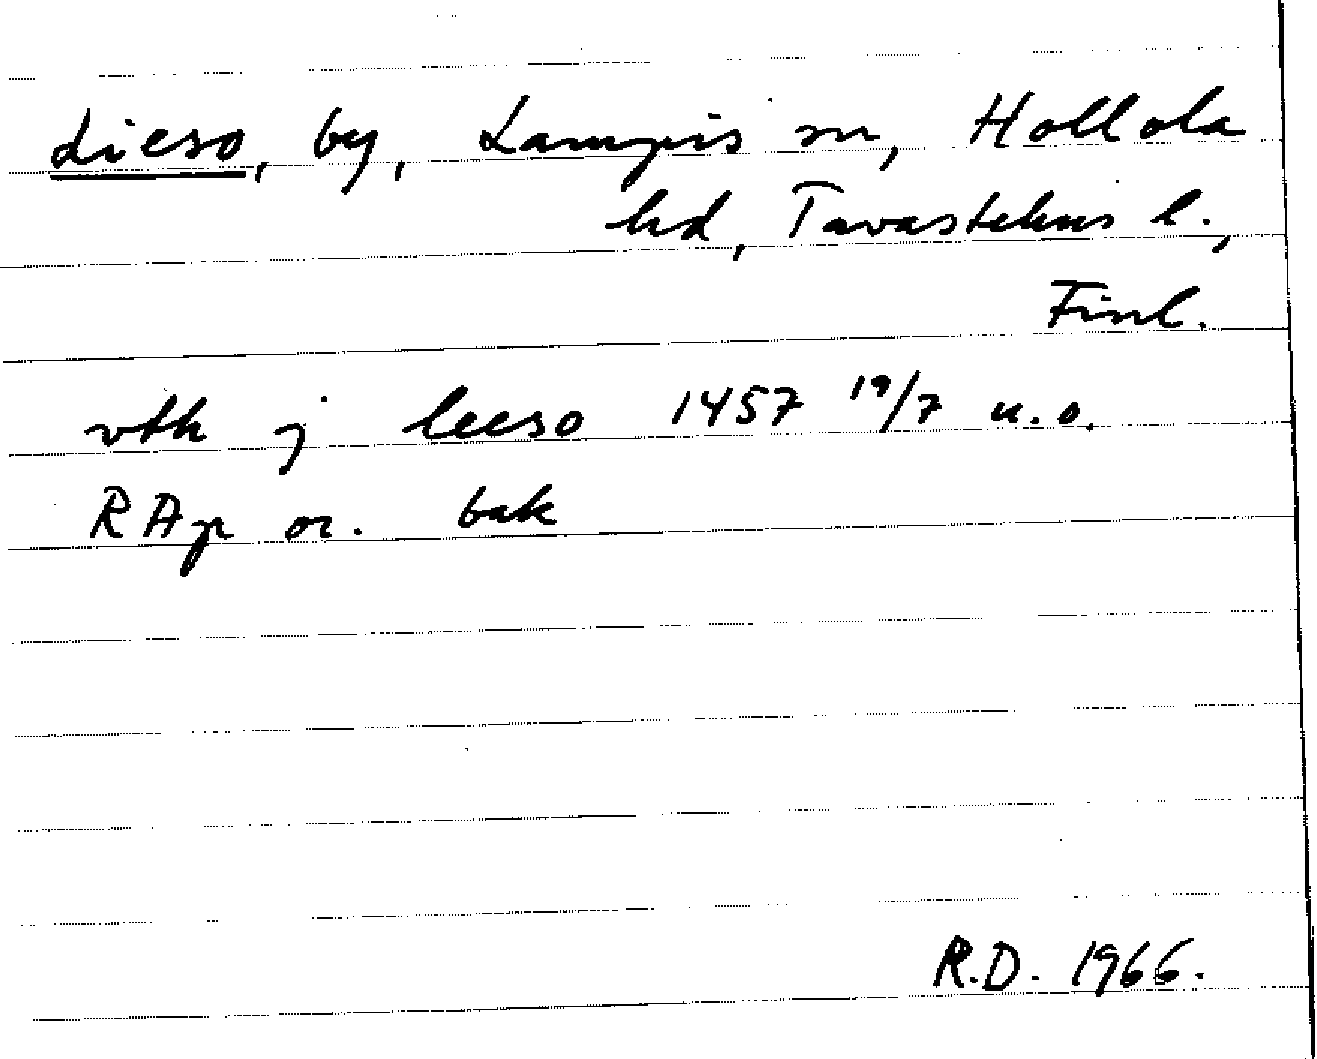 Lieso, by, Lampis sn, Hollola
hd, Tavastehus l.,
Finl.
vtk j leeso 1457 19/7 u.o.
RAp or. bak
R.D. 1966.